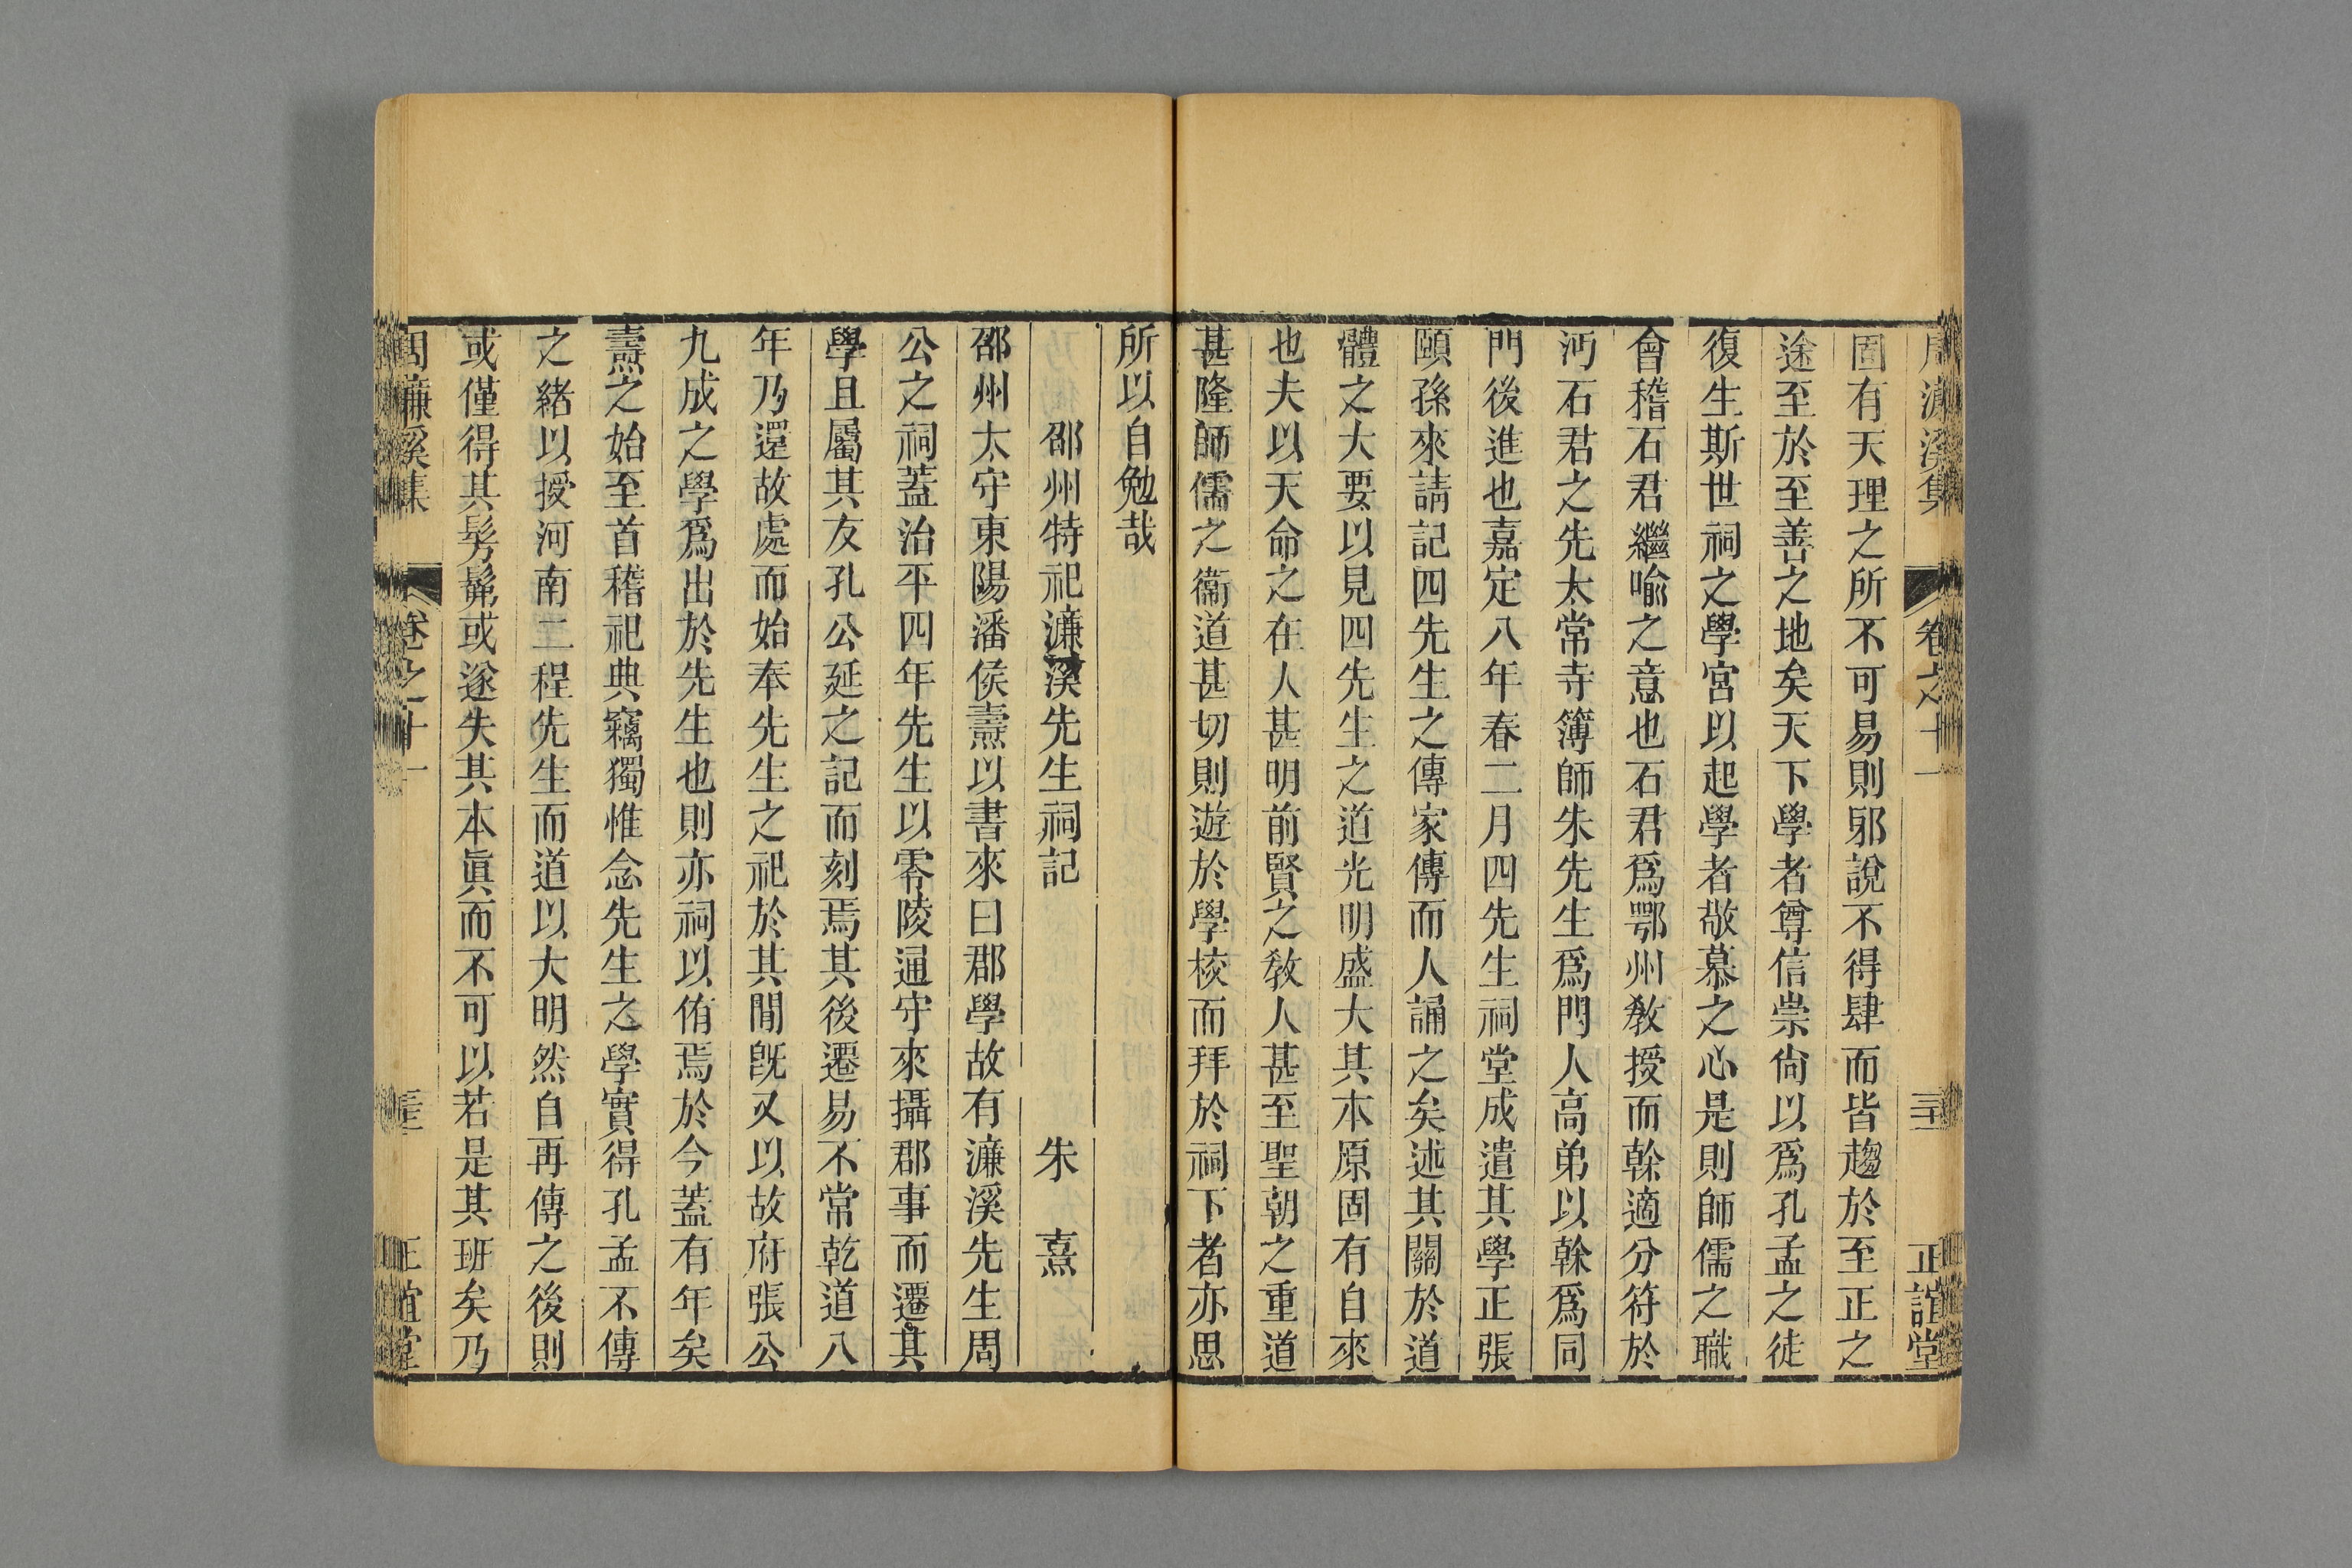 周濂溪集 卷之十一 正誼堂
固有天理之所不可易則邪說不得肆而皆趨於至正之
途至於至善之地矣天下學者尊信崇尙以爲孔孟之徒
復生斯世祠之學宮以起學者敬慕之心是則師儒之職
會稽石君繼喻之意也石君爲鄂州教授而榦適分符於
沔石君之先太常寺簿師朱先生爲門人高弟以榦爲同
門後進也嘉定八年春二月四先生祠堂成遣其學正張
頤孫來請記四先生之傳家傳而人誦之矣述其關於道
體之大要以見四先生之道光明盛大其本原固有自來
也夫以天命之在人甚明前賢之敎人甚至聖朝之重道
甚隆師儒之衞道甚切則遊於學校而拜於祠下者亦思
所以自勉哉
邵州特祀濂溪先生祠記 朱熹
邵州太守東陽潘侯燾以書來曰郡學故有濂溪先生周
公之祠蓋治平四年先生以零陵通守來攝郡事而遷其
學且屬其友孔公延之記而刻焉其後遷易不常乾道八
年乃還故處而始奉先生之祀於其間旣又以故府張公
九成之學爲出於先生也則亦祠以侑焉於今蓋有年矣
燾之始至首稽祀典竊獨惟念先生之學實得孔孟不傳
之緒以授河南二程先生而道以大明然自再傳之後則
或僅得其髣髴或遂失其本眞而不可以若是其班矣乃
周濂溪集 卷之十一 正誼堂